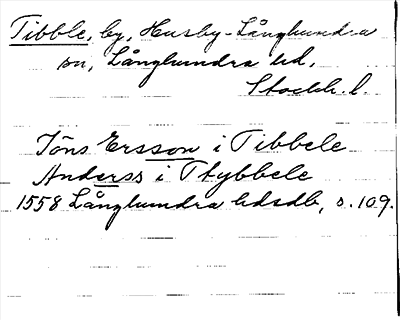 Tibble, by, Husby-Långhundra
sn, Långhundra hd,
Stockh. l.
Jöns Ersson i Tibbele
Anderss i Ttybbele
1558 Långhundra hdsdb, s. 109.